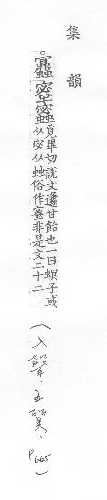 集韻
蜜
覓畢切說文蠭甘飴也一曰螟子或
从宓从䖵俗作非是文二十二
(入聲.五質.P665)